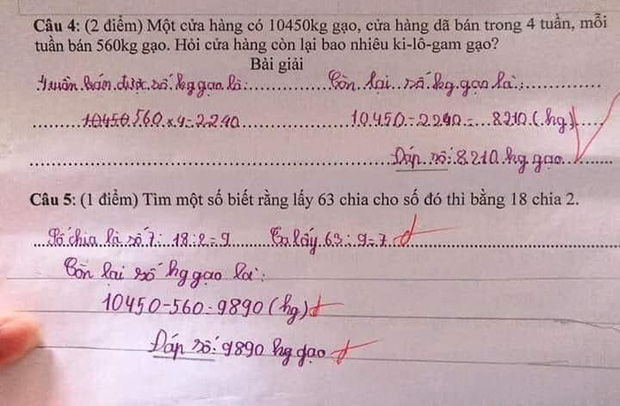 Câu 4: (2 điểm) Một cửa hàng có 10450kg gạo, cửa hàng đã bán trong 4 tuần, mỗi
tuần bán 560kg gạo. Hỏi cửa hàng còn lại bao nhiêu ki-lô-gam gạo?
Bài giải
4 tuần bán được số kg gao là: Còn lai số kg gao là:
10450 560 x 4 = 2240 10450 - 2240 = 8210 (kg)
Đáp số: 8210 kg gạo
Câu 5: (1 điểm) Tìm một số biết rằng lấy 63 chia cho số đó thì bằng 18 chia 2.
Số chia là số 7: 18:2=9 Ta lấy 63:9=7
Còn lại số kg gạo là:
10450-560=9890 (kg)
Đáp số: 9890 kg gạo